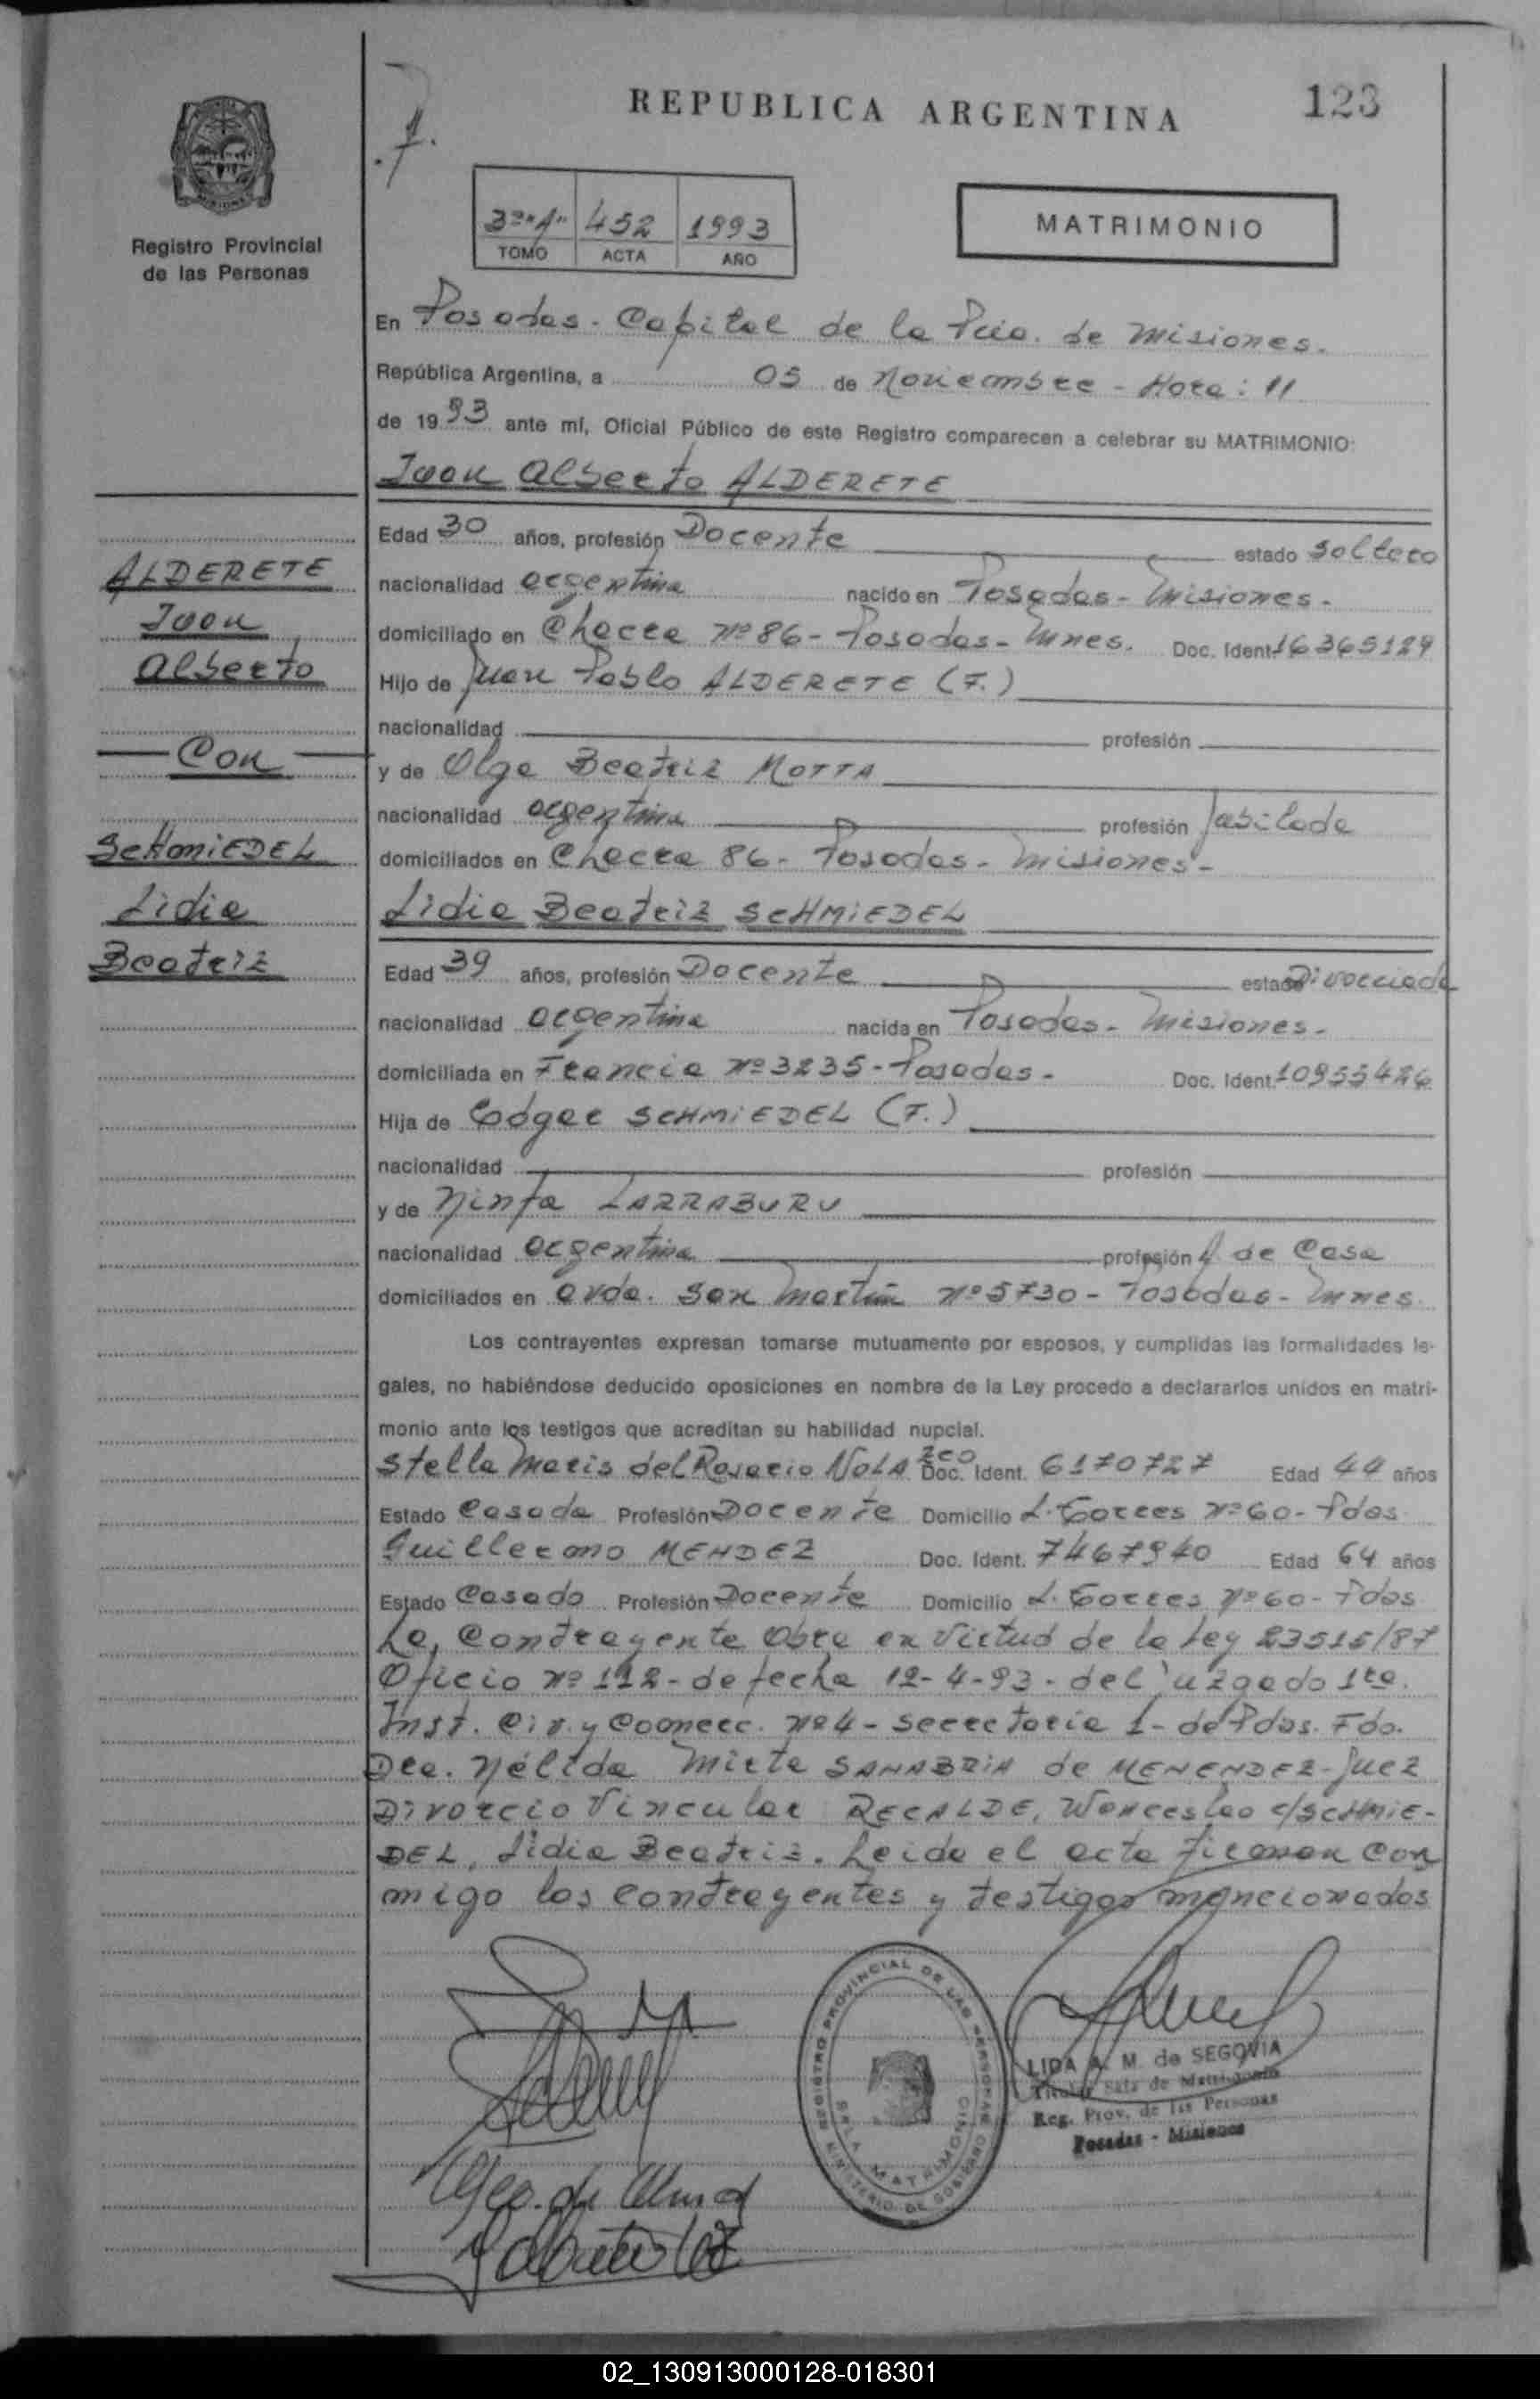 REPUBLICA ARGENTINA
123
Registro Provincial
de las Personas
3º "A" 452 1993
TOMO ACTA AÑO
MATRIMONIO
En Posadas - Capital de la Pcia. de Misiones.
República Argentina, a 05 de Noviembre - Hora: 11
de 1993 ante mí, Oficial Público de este Registro comparecen a celebrar su MATRIMONIO:
Juan Alberto ALDERETE
Edad 30 años, profesión Docente estado Soltero
nacionalidad argentina nacido en Posadas - Misiones.
domiciliado en Chacra Nº 86 - Posadas - Mnes. Doc. Ident. 16365129
Hijo de Juan Pablo ALDERETE (F.)
nacionalidad profesión
y de Olga Beatriz MOTTA
nacionalidad argentina profesión Jubilada
domiciliados en Chacra 86 - Posadas - Misiones -
Lidia Beatriz SCHMIEDEL
Edad 39 años, profesión Docente estado Divorciada
nacionalidad argentina nacida en Posadas - Misiones.
domiciliada en Francia Nº 3235 - Posadas - Doc. Ident. 10955426
Hija de Edgar SCHMIEDEL (F.)
nacionalidad profesión
y de Ninfa LARRABURU
nacionalidad argentina profesión A. de Casa
domiciliados en avda. San Martín Nº 5730 - Posadas - Mnes.
Los contrayentes expresan tomarse mutuamente por esposos, y cumplidas las formalidades le-
gales, no habiéndose deducido oposiciones en nombre de la Ley procedo a declararlos unidos en matri-
monio ante los testigos que acreditan su habilidad nupcial.
Stella Maris del Rosario NOLAZCO Doc. Ident. 6170727 Edad 44 años
Estado Casada Profesión Docente Domicilio L. Torres Nº 60 - Pdas
Guillermo MENDEZ Doc. Ident. 7467940 Edad 64 años
Estado Casado Profesión Docente Domicilio L. Torres Nº 60 - Pdas
La Contrayente Obra en Virtud de la Ley 23515/87
Oficio Nº 112 - de fecha 12-4-93 - del juzgado 1ra.
Inst. Civ. y Comerc. Nº 4 - Secretaria 1 - de Pdas. Fdo.
Dra. Nélida Mirta SANABRIA de MENENDEZ - Juez
Divorcio Vincular RECALDE, Wenceslao c/SCHMIE-
DEL, Lidia Beatriz. Leida el acta firman con
migo los contrayentes y testigos mencionados
ALDERETE
Juan
Alberto
Con
SCHMIEDEL
Lidia
Beatriz
REGISTRO PROVINCIAL DE LAS PERSONAS
MINISTERIO DE GOBIERNO
SALA MATRIMONIO
LIDA A. M. de SEGOVIA
Titular Sala de Matrimonio
Reg. Prov. de las Personas
Posadas - Misiones
02_130913000128-018301